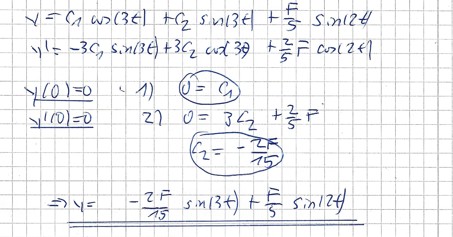 y = C₁ cos(3t) + C₂ sin(3t) + F/5 sin(2t)
y' = -3C₁ sin(3t) + 3C₂ cos(3t) + 2/5 F cos(2t)
y(0)=0 1) 0 = C₁
y'(0)=0 2) 0 = 3C₂ + 2/5 F
C₂ = - 2F/15
⇒ y = - 2F/15 sin(3t) + F/5 sin(2t)